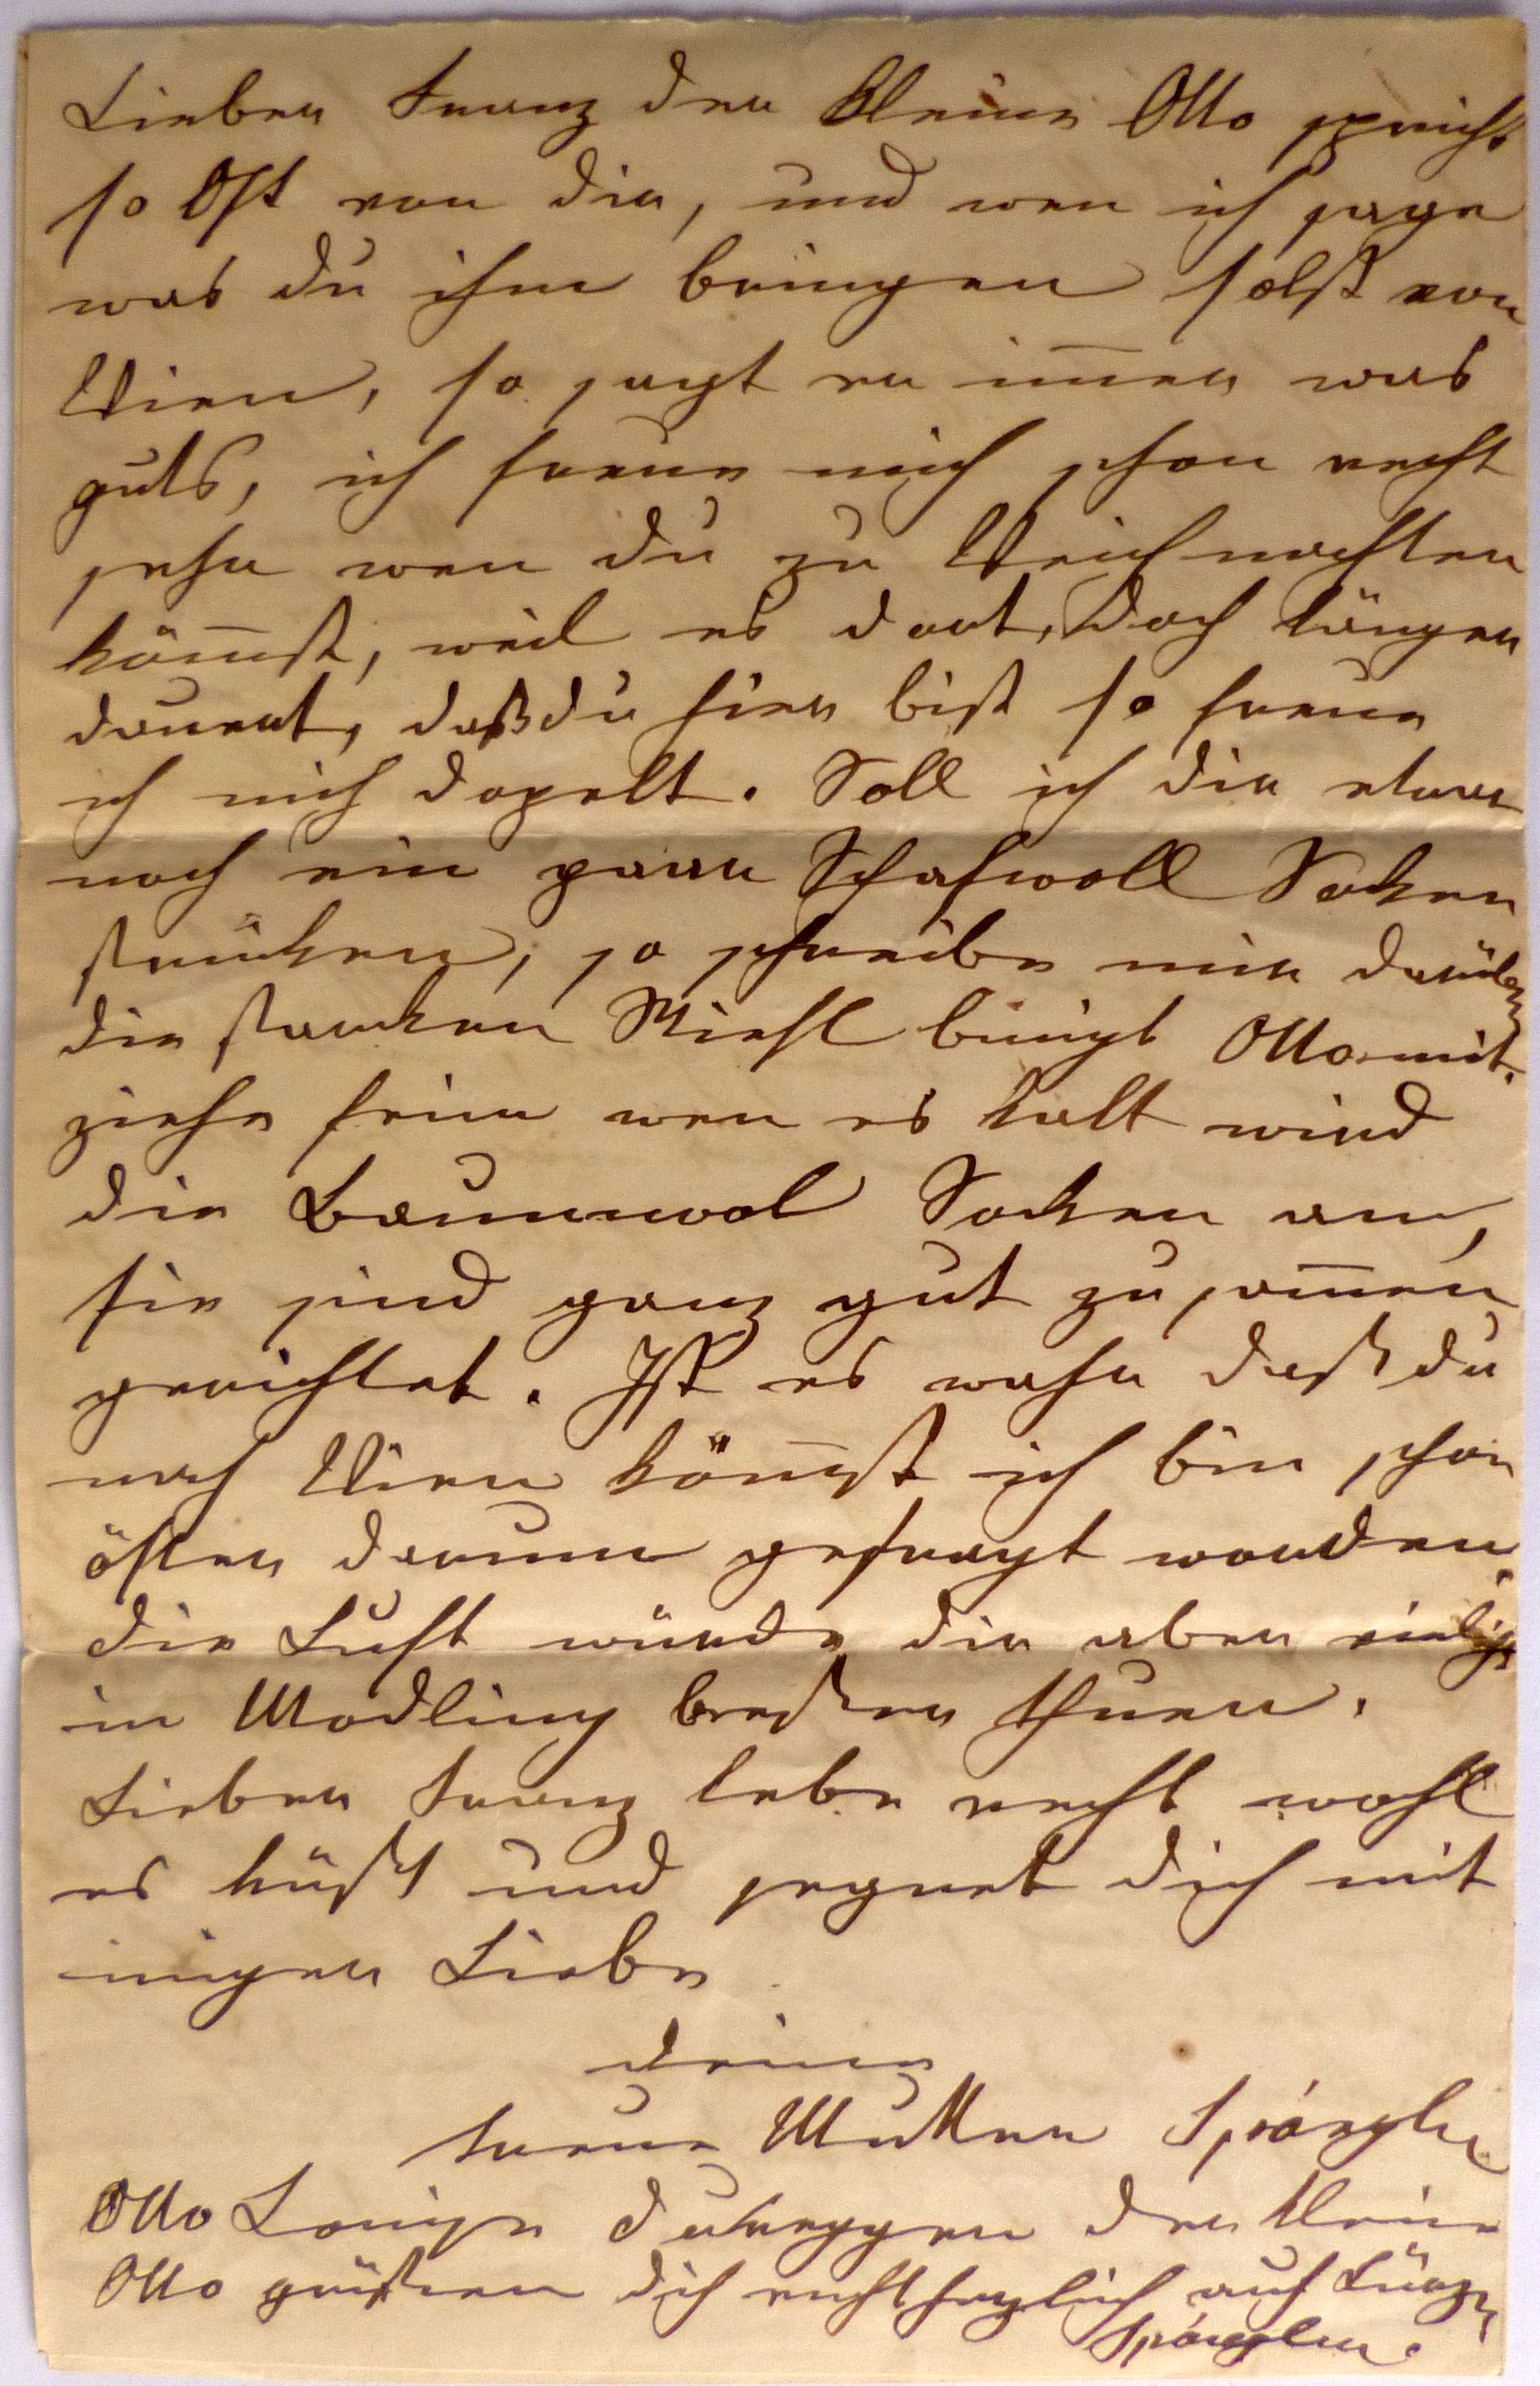 Lieber Franz der kleine Otto spricht
so Oft von dir, und wen ich sage
was du ihm bringen solst von
Wien, so sagt er im̅er was
guts, ich freue mich schon recht
sehr wen du zu Weichnachten
köm̅st, weil es dort, doch länger
dauert, daß du hier bist so freue
ich mich dopelt. Soll ich dir etwa
noch ein paar Schafwoll Soken
strüken, so schreibe mir darüber
die starken Stiefl bringt Otto mit.
ziehe feim wen es kalt wird
die Baumwol Soken an,
sie sind ganz gut zusam̅en
gerichtet. Ist es wahr daß du
nach Wien köm̅st ich bin schon
öfter darum gefragt worden.
die Luft würde dir aber
in Modling beßer thuen.
Lieber Franz lebe recht wohl
es küßt und segnet dich mit
iniger Liebe
deine
treue Mutter Spángler
Otto Louise der kleine
Otto grüßen dich recht herzlich auch
Spángler.